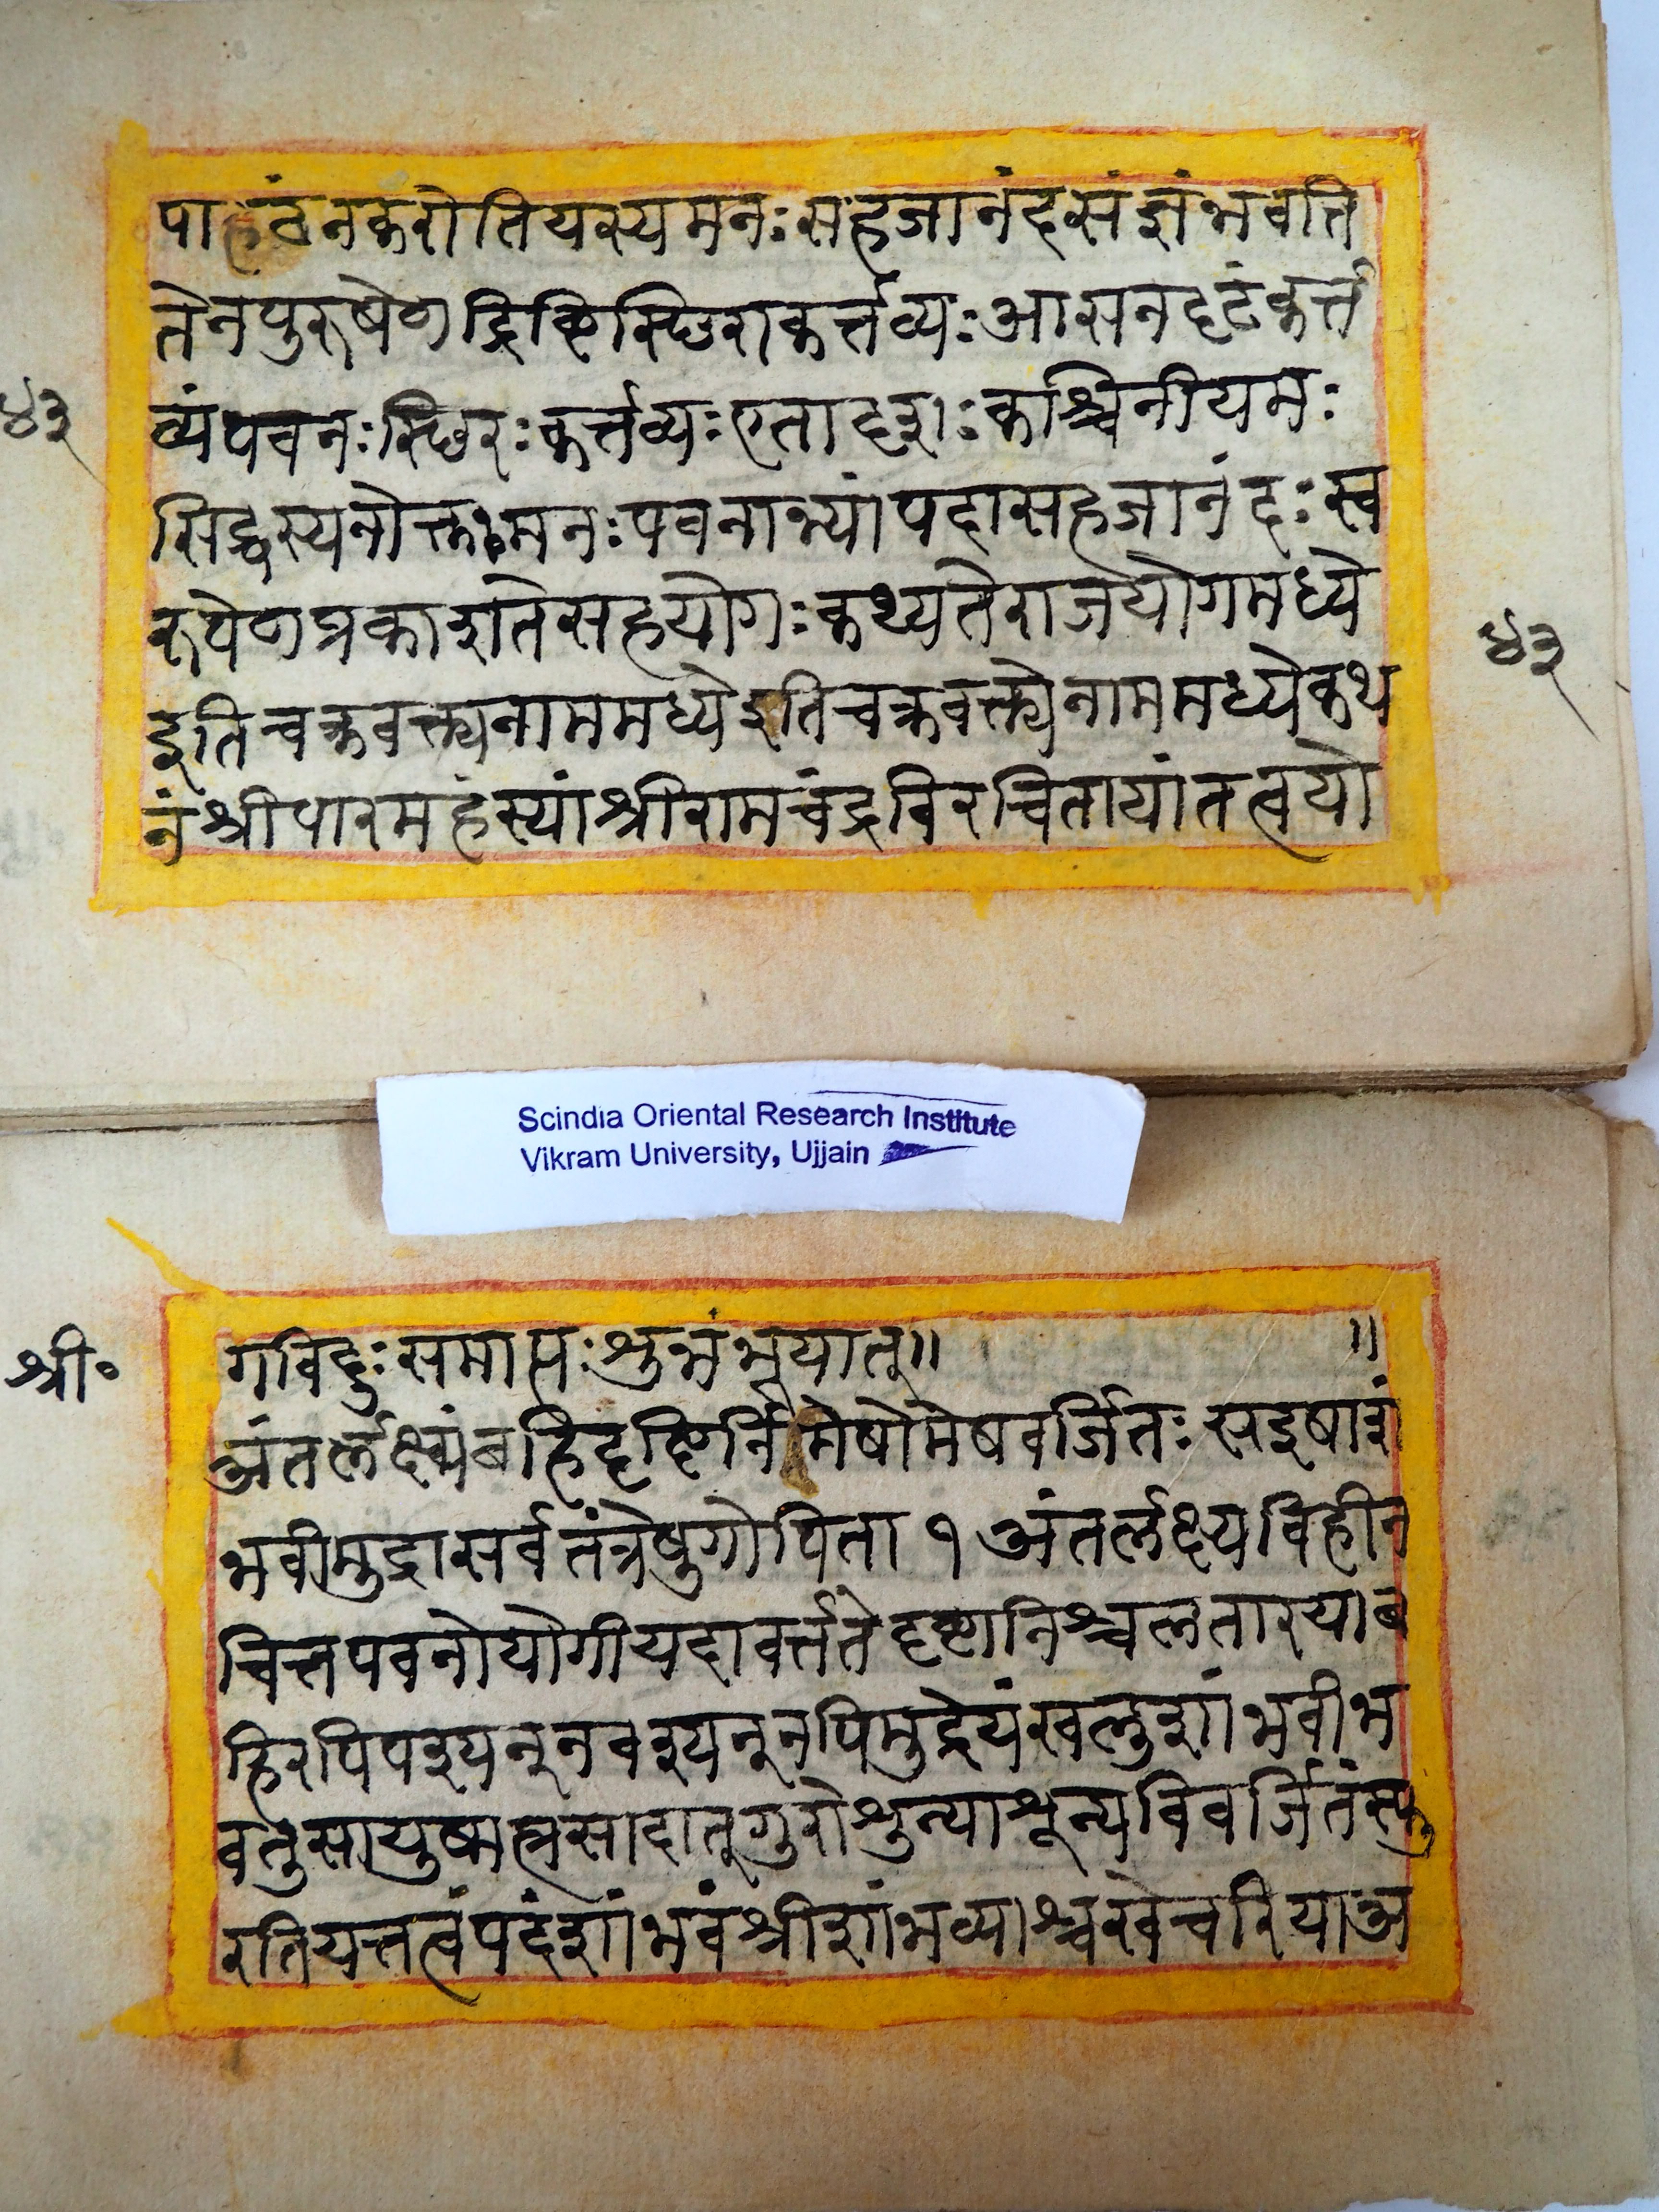 पाहठंनकरोतियस्यमनःसहजानंदसंज्ञंभवति
तेनपुरुषेणद्रिष्टिस्थिराकर्त्तव्यःआसनदृढंकर्त्त
४३
व्यंपवनःस्थिरःकर्त्तव्यःएतादृशःकश्चिनीयमः
सिद्धस्यनोक्तःमनःपवनाभ्यांपदासहजानंदःस्व
रूपेणप्रकाशतेसहयोगःकथ्यतेराजयोगमध्ये
४३
इतिचक्रवर्क्त्यनाममध्येइतिचक्रवर्क्त्येनाममध्येकथ
नंश्रीपारमहंस्यांश्रीरामचंद्रविरचितायांतत्वयो
Scindia Oriental Research Institute
Vikram University, Ujjain
श्री॰
गविदुःसमाप्तःशुभंभूयात्॥ ॥
अंतर्लक्ष्यंबहिदृष्टिर्निमेषोमेषवर्जितःसइषाशं
भवीमुद्रासर्वतंत्रेषुगोपिता १ अंतर्लक्ष्यविहीन
चित्तपवनोयोगीयदावर्त्ततेदृष्टानिश्चलतारयाब
हिरपिपश्यन्नवश्यन्नपिमुद्रेयंखलुशांभवीभ
वतुसायुष्मत्प्रसादात्गुरोशुन्याशून्यविवर्जितंस्फु
रतियत्तत्वंपदंशांभवंश्रीशांभव्याश्चखेचरियाअ